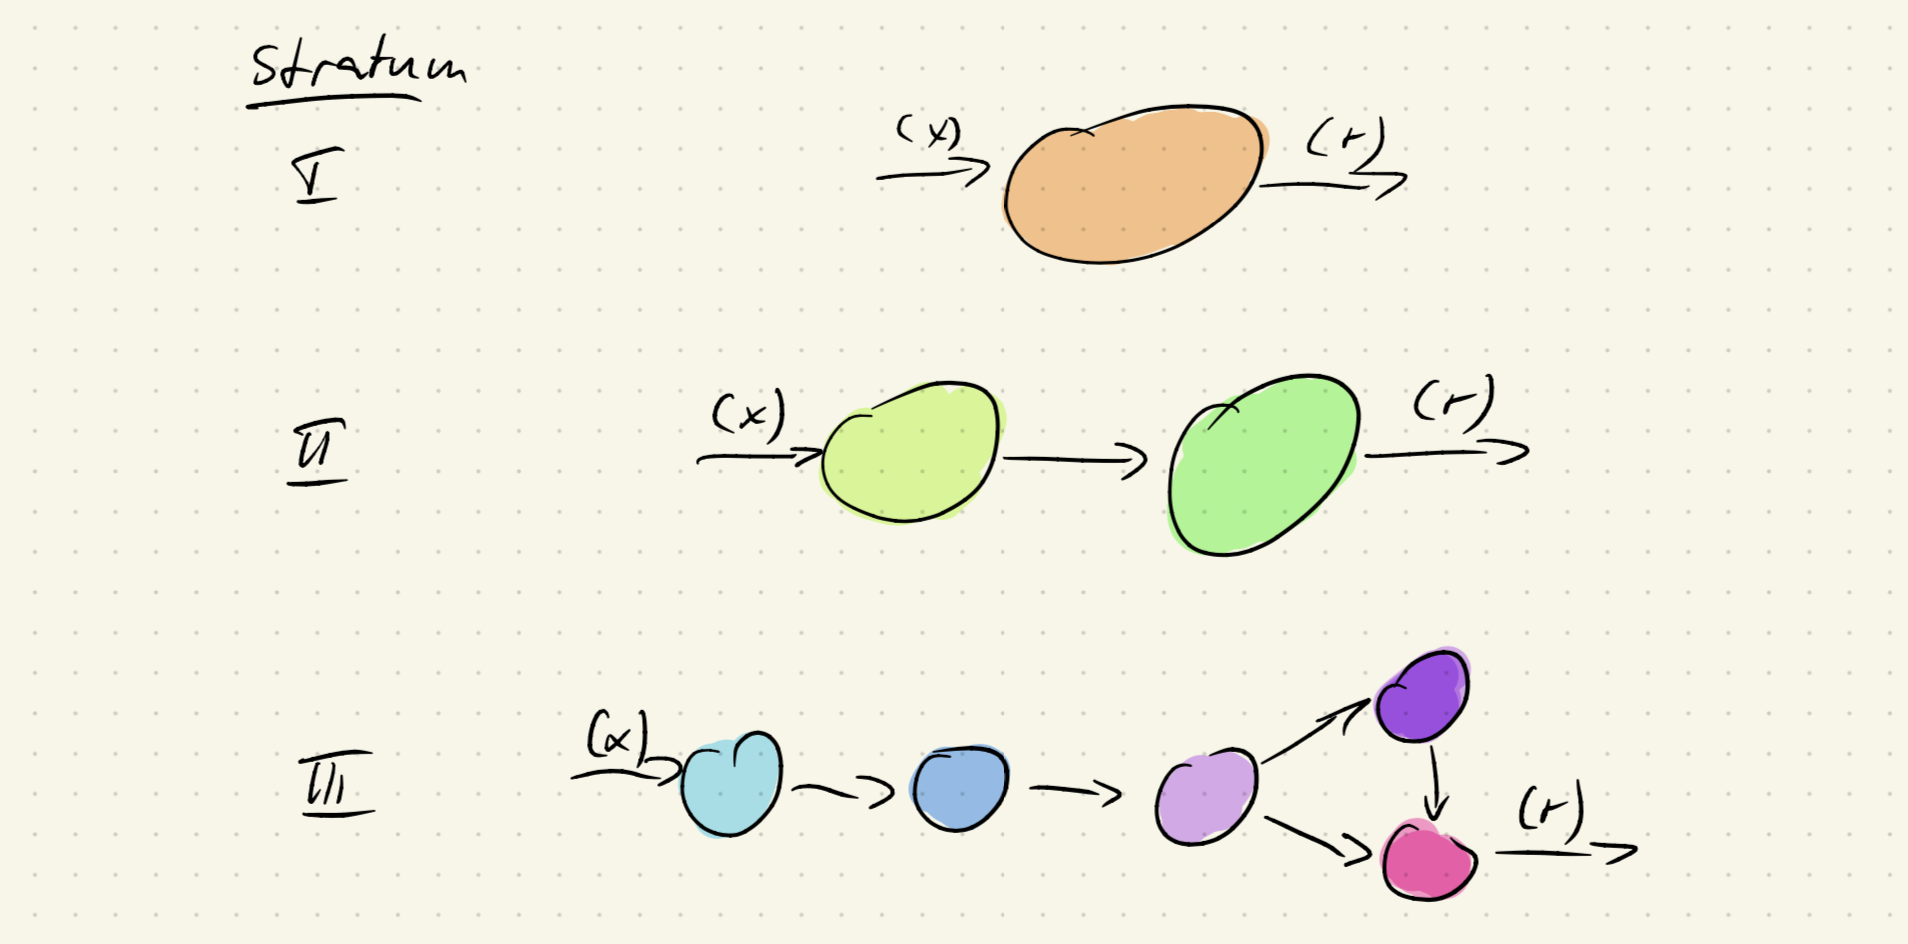 Stratum
I
(x)
(r)
II
(x)
(r)
III
(x)
(r)